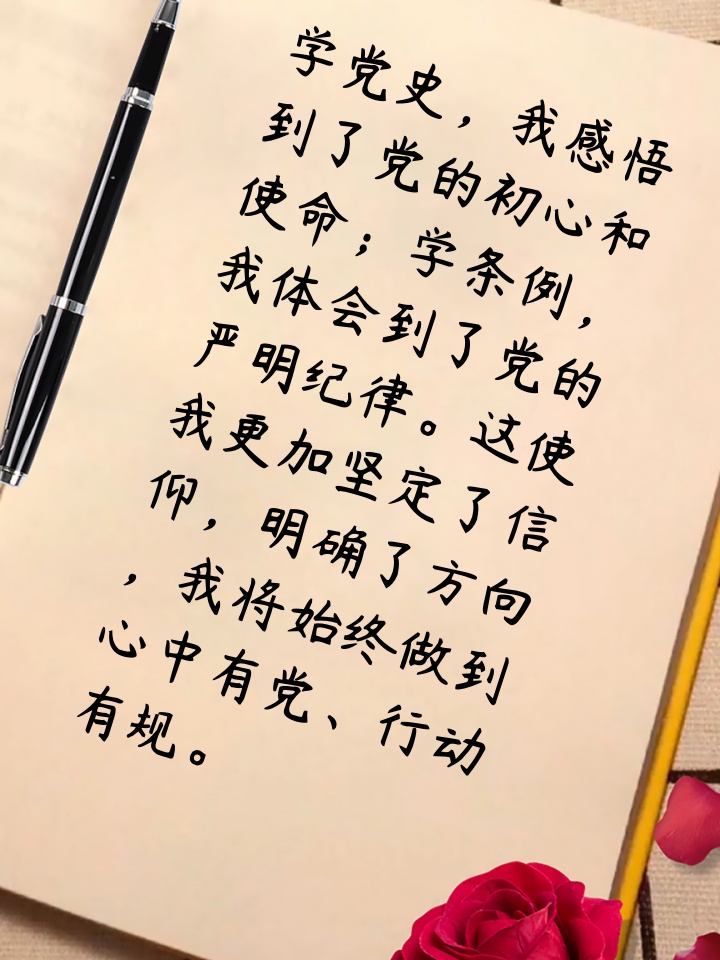 学党史，我感悟
到了党的初心和
使命；学条例，
我体会到了党的
严明纪律。这使
我更加坚定了信
仰，明确了方向
，我将始终做到
心中有党、行动
有规。